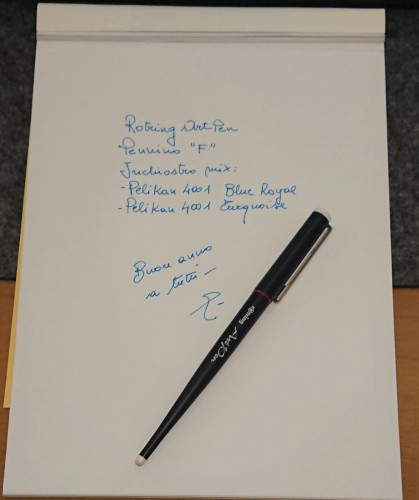 Rotring ArtPen
Pennino "F"
Inchiostro mix:
-Pelikan 4001 Blue Royal
-Pelikan 4001 Turquoise
Buon anno
a tutti-
rotring ArtPen